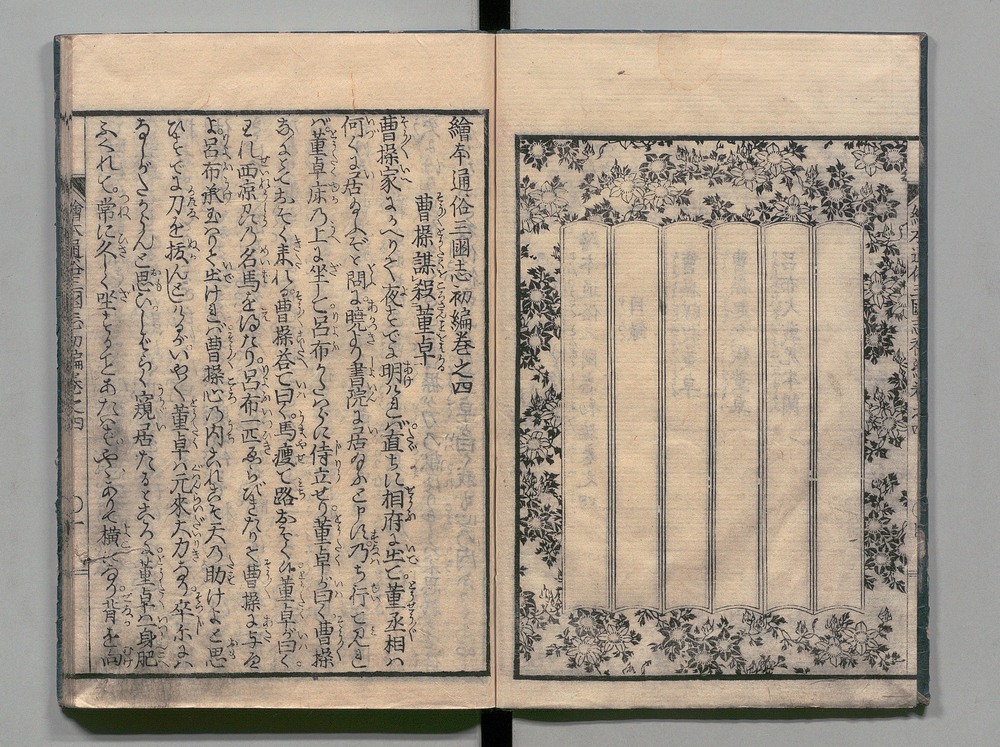 繪本通俗三國志初編巻之四
曹操謀殺董卓
曹操家にかへりて夜すでに明ければ直ちに相府に出て董丞相は
何くに居るぞと問に曉より書院に居玉ふと申す乃ち行て見れ
ば董卓床の上に坐し呂布かたはらに侍立せり董卓が曰く曹操
なにとておそく来れる曹操答て曰く馬痩て路おそく候董卓が曰く
われ西凉の名馬を得たり呂布一匹ゑらびきたりて曹操に与へ
よ呂布承玉はりて出ければ曹操心の内これこそ天の助けよと思
ひすでに刀を抜んとしけるがいやいや董卓は元來大力なる卒尓には
なしがたからんと思ひしばらく窺ひ居たるところに董卓は身肥
ふくれて常に久しく坐することあたはず
横になり背を向
繪本通俗三國志初編巻之四